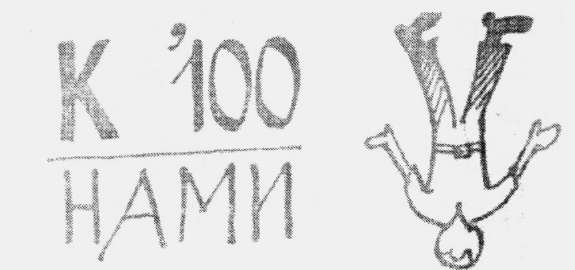 К '100
НАМИ